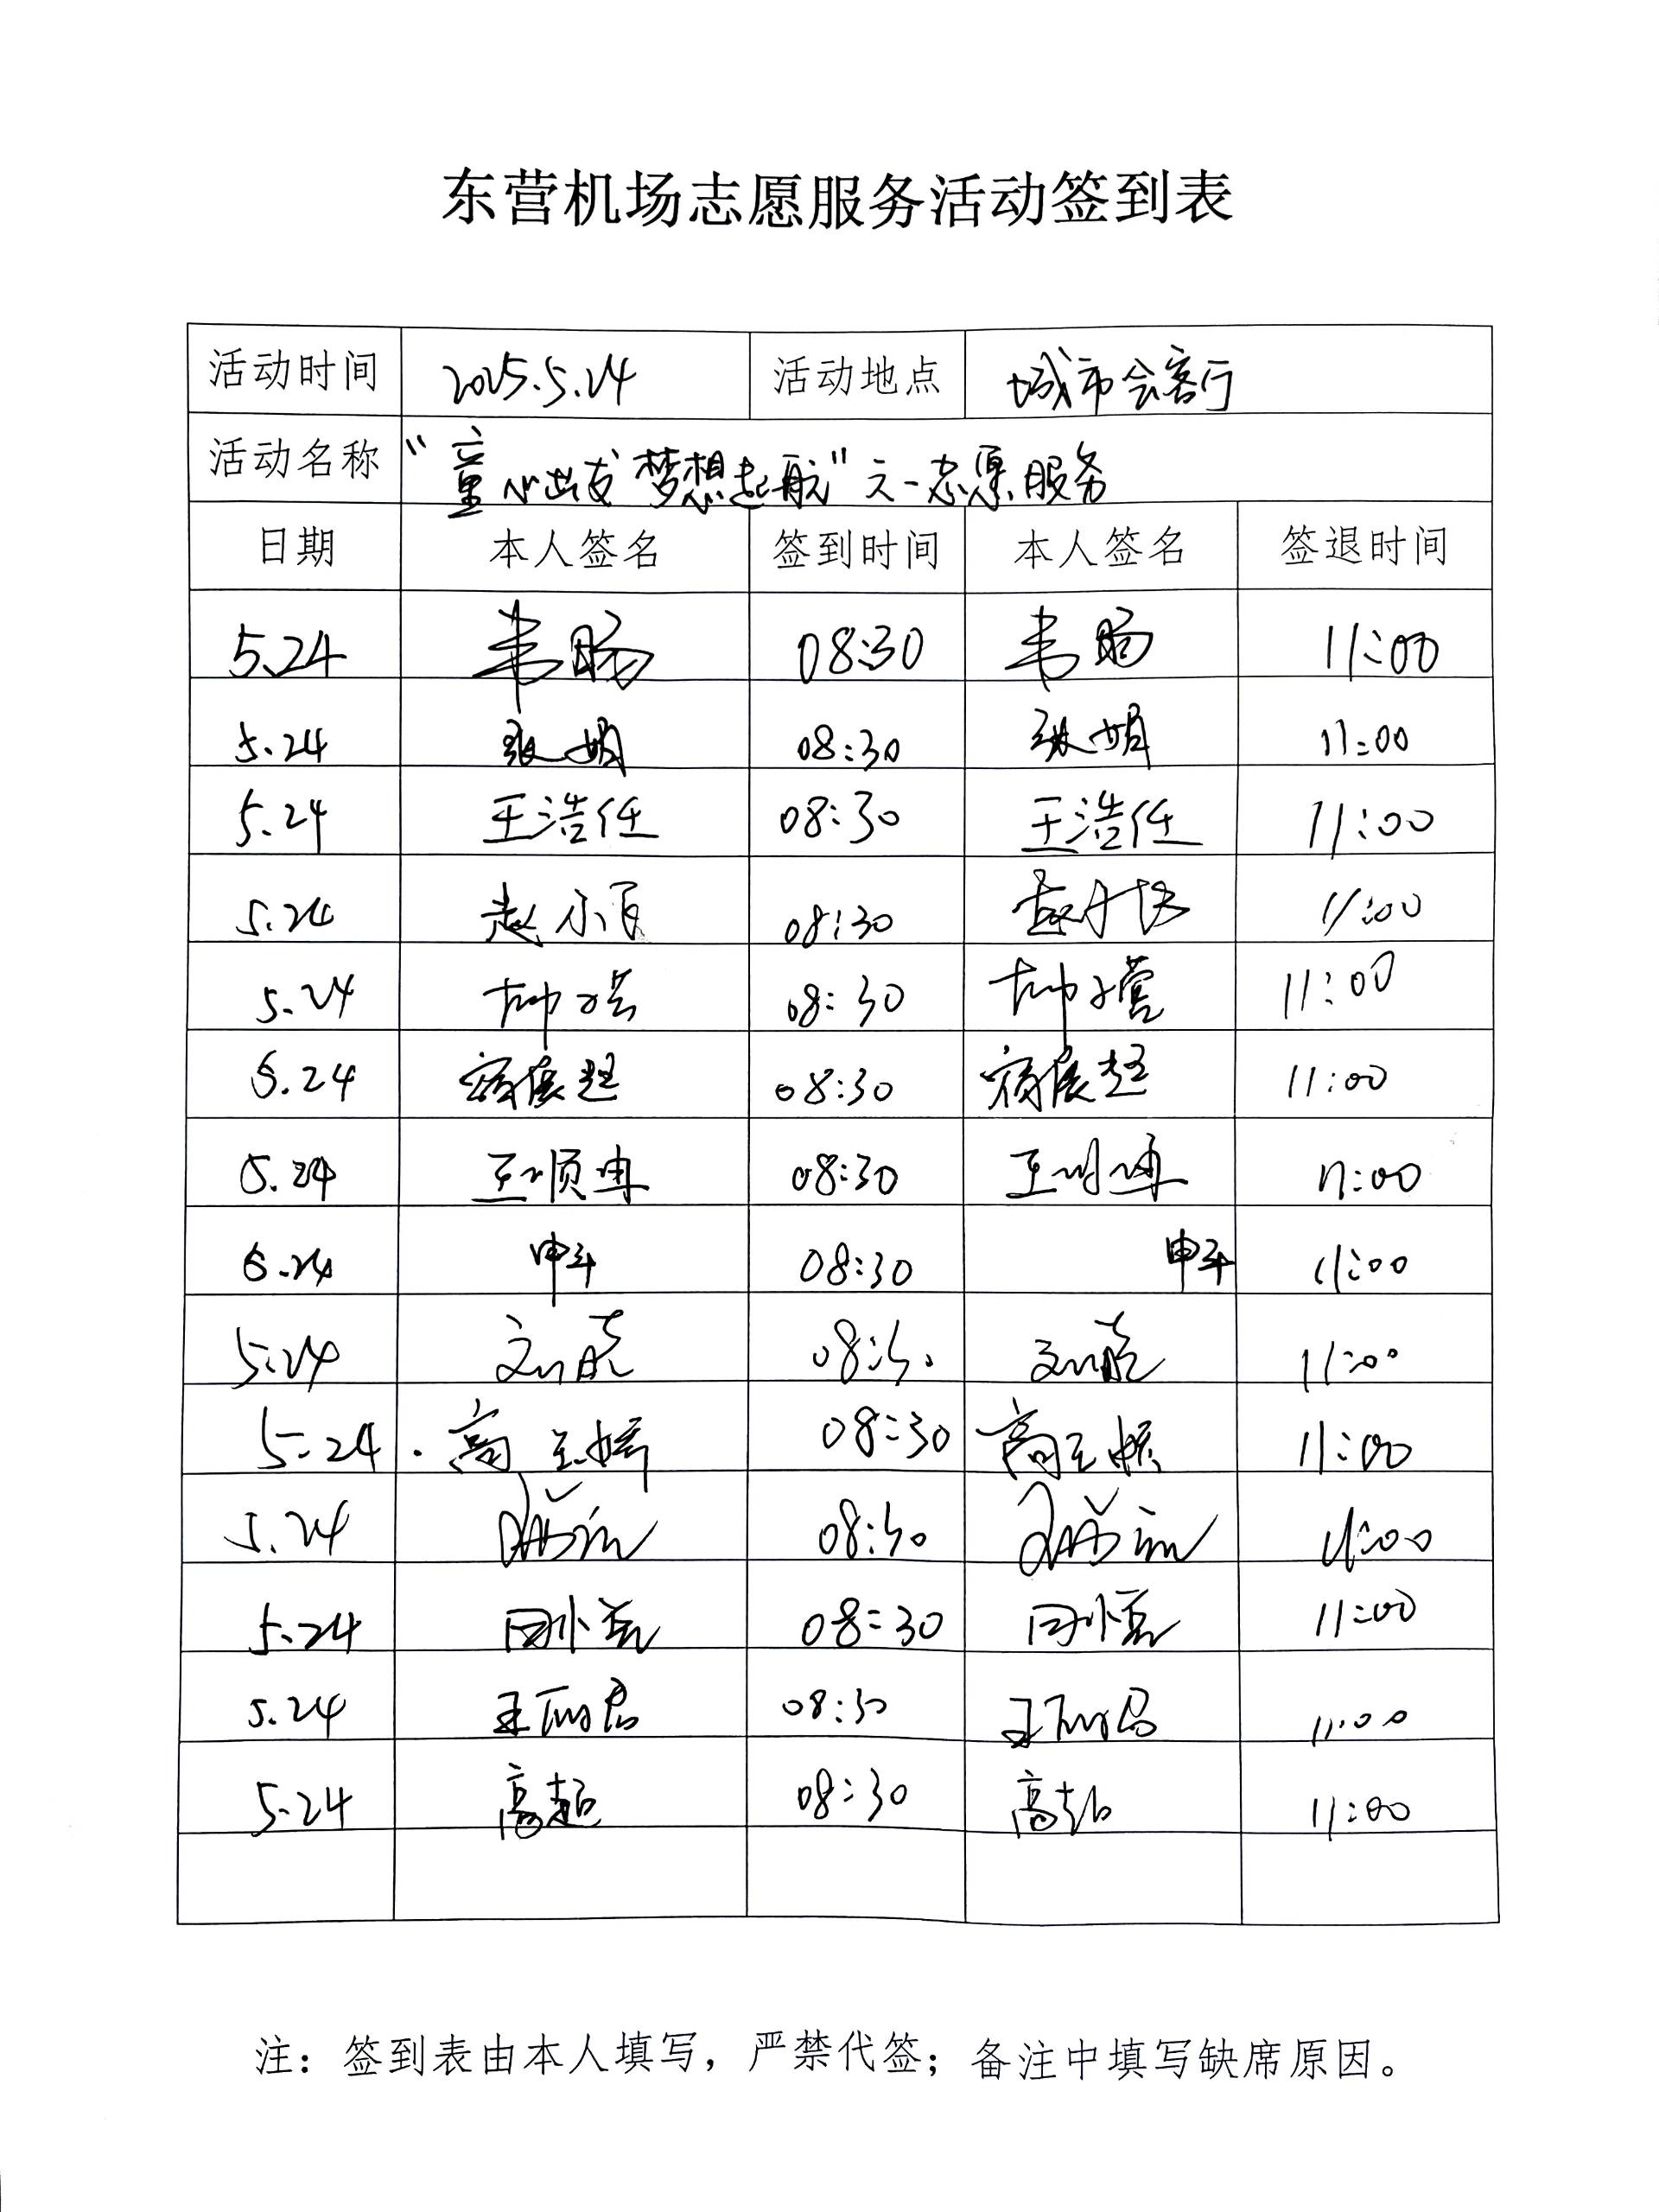 东营机场志愿服务活动签到表
活动时间 2025.5.24 活动地点 城市会客厅
活动名称 “童心出发 梦想起航”六一志愿服务
日期 本人签名 签到时间 本人签名 签退时间
5.24 韦旸 08:30 韦旸 11:00
5.24 张娟 08:30 张娟 11:00
5.24 王浩任 08:30 王浩任 11:00
5.24 赵 08:30 11:00
5.24 08:30 11:00
5.24 展超 08:30 展超 11:00
5.24 王顺 08:30 王 11:00
5.24 申斗 08:30 申斗 11:00
5.24 刘晓 08:30 刘晓 11:00
5.24 高 08:30 高 11:00
5.24 08:30 11:00
5.24 08:30 11:00
5.24 王丽君 08:30 王丽君 11:00
5.24 高超 08:30 高超 11:00
注：签到表由本人填写，严禁代签；备注中填写缺席原因。